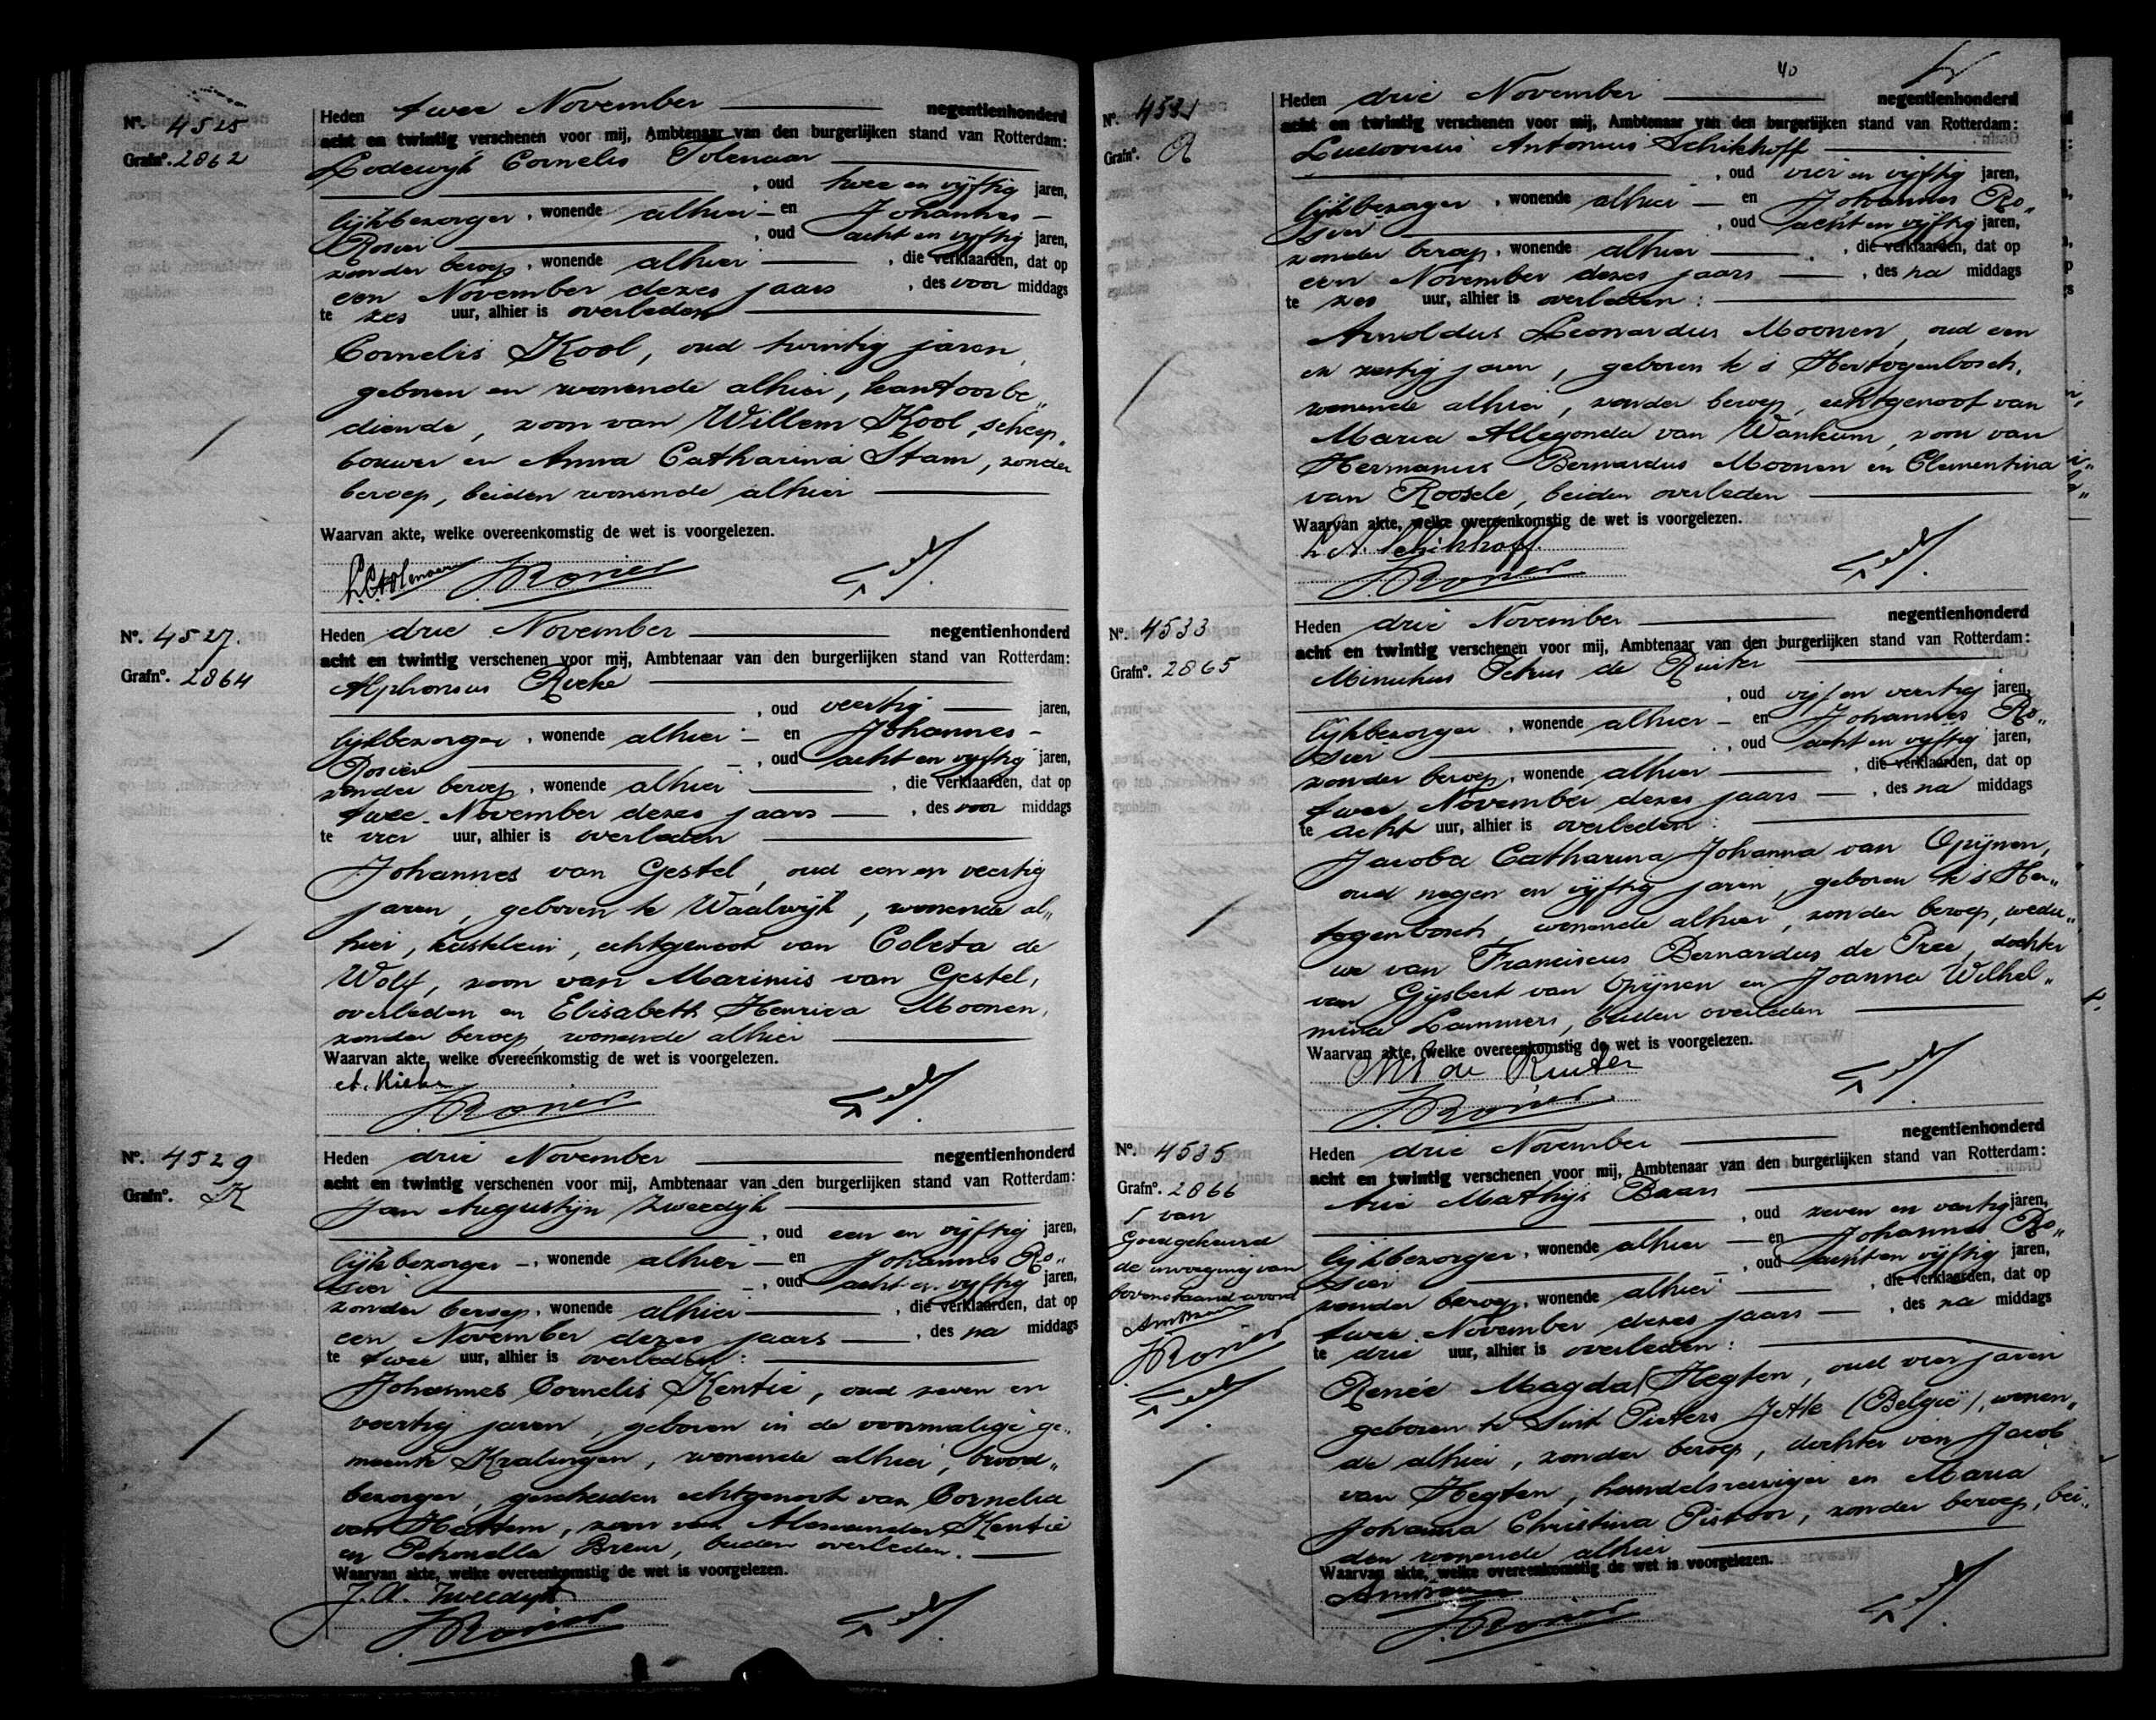 Nº. 4525
Grafnº. 2862
Heden twee November negentienhonderd
acht en twintig verschenen voor mij, Ambtenaar van den burgerlijken stand van Rotterdam:
Lodewijk Cornelis Tolenaar
, oud twee en vijftig jaren,
lijkbezorger, wonende alhier en Johannes
Rosier, oud acht en vijftig jaren,
zonder beroep, wonende alhier, die verklaarden, dat op
een November dezes jaars, des voor middags
te zes uur, alhier is overleden
Cornelis Kool, oud twintig jaren,
geboren en wonende alhier, kantoorbe„
diende, zoon van Willem Kool, scheeps„
bouwer en Anna Catharina Stam, zonder
beroep, beiden wonende alhier
Waarvan akte, welke overeenkomstig de wet is voorgelezen.
L.C. Tolenaar JRosier
Nº. 4527.
Grafnº. 2864
Heden drie November negentienhonderd
acht en twintig verschenen voor mij, Ambtenaar van den burgerlijken stand van Rotterdam:
Alphonsus Rieke
, oud veertig jaren,
lijkbezorger, wonende alhier en Johannes
Rosier, oud acht en vijftig jaren,
zonder beroep, wonende alhier, die verklaarden, dat op
twee November dezes jaars, des voor middags
te vier uur, alhier is overleden
Johannes van Gestel, oud een en veertig
jaren, geboren te Waalwijk, wonende al„
hier, kastelein, echtgenoot van Coleta de
Wolf, zoon van Marinus van Gestel,
overleden en Elisabeth Henrica Moonen,
zonder beroep, wonende alhier
Waarvan akte, welke overeenkomstig de wet is voorgelezen.
A. Rieke
JRosier
Nº. 4529
Grafnº. K
Heden drie November negentienhonderd
acht en twintig verschenen voor mij, Ambtenaar van den burgerlijken stand van Rotterdam:
Jan Augustijn Zweedijk
, oud een en vijftig jaren,
lijkbezorger, wonende alhier en Johannes Ro„
sier, oud acht en vijftig jaren,
zonder beroep, wonende alhier, die verklaarden, dat op
een November dezes jaars, des na middags
te twee uur, alhier is overleden:
Johannes Cornelis Kentie, oud zeven en
veertig jaren, geboren in de voormalige ge„
meente Kralingen, wonende alhier, brood„
bezorger, gescheiden echtgenoot van Cornelia
van Hattem, zoon van Alexander Kentie
en Petronella Breur, beiden overleden.
Waarvan akte, welke overeenkomstig de wet is voorgelezen.
J.A. Zweedijk
JRosier
40
Nº. 4531
Grafnº. R
Heden drie November negentienhonderd
acht en twintig verschenen voor mij, Ambtenaar van den burgerlijken stand van Rotterdam:
Ludovicus Antonius Schikhoff
, oud vier en vijftig jaren,
lijkbezorger, wonende alhier en Johannes Ro„
sier, oud acht en vijftig jaren,
zonder beroep, wonende alhier, die verklaarden, dat op
een November dezes jaars, des na middags
te zes uur, alhier is overleden:
Arnoldus Leonardus Moonen, oud een
en zestig jaren, geboren te 's Hertogenbosch,
wonende alhier, zonder beroep, echtgenoot van
Maria Allegonda van Wankum, zoon van
Hermanus Bernardus Moonen en Clementina
van Roosele, beiden overleden
Waarvan akte, welke overeenkomstig de wet is voorgelezen.
L A. Schikhoff
JRosier
Nº. 4533
Grafnº. 2865
Heden drie November negentienhonderd
acht en twintig verschenen voor mij, Ambtenaar van den burgerlijken stand van Rotterdam:
Minutius Petrus de Ruiter
, oud vijf en veertig jaren,
lijkbezorger, wonende alhier en Johannes Ro„
sier, oud acht en vijftig jaren,
zonder beroep, wonende alhier, die verklaarden, dat op
twee November dezes jaars, des na middags
te acht uur, alhier is overleden:
Jacoba Catharina Johanna van Opijnen,
oud negen en vijftig jaren, geboren te 's Her„
togenbosch, wonende alhier, zonder beroep, wedu„
we van Franciscus Bernardus de Pree, dochter
van Gijsbert van Opijnen en Joanna Wilhel„
mina Lammers, beiden overleden
Waarvan akte, welke overeenkomstig de wet is voorgelezen.
de Ruiter
JRosier
Nº. 4535
Grafnº. 2866
Γ van
Goedgekeurd
de invoeging van
bovenstaand woord
JRosier
Heden drie November negentienhonderd
acht en twintig verschenen voor mij, Ambtenaar van den burgerlijken stand van Rotterdam:
Arie Mathijs Baars
, oud zeven en veertig jaren,
lijkbezorger, wonende alhier en Johannes Ro„
sier, oud acht en vijftig jaren,
zonder beroep, wonende alhier, die verklaarden, dat op
twee November dezes jaars, des na middags
te drie uur, alhier is overleden:
Renée Magda Γ Hegten, oud vier jaren
geboren te Sint Pieters Jette (België), wonen„
de alhier, zonder beroep, dochter van Jacob
van Hegten, handelsreiziger en Maria
Johanna Christina Pistoor, zonder beroep, bei„
den wonende alhier
Waarvan akte, welke overeenkomstig de wet is voorgelezen.
JRosier